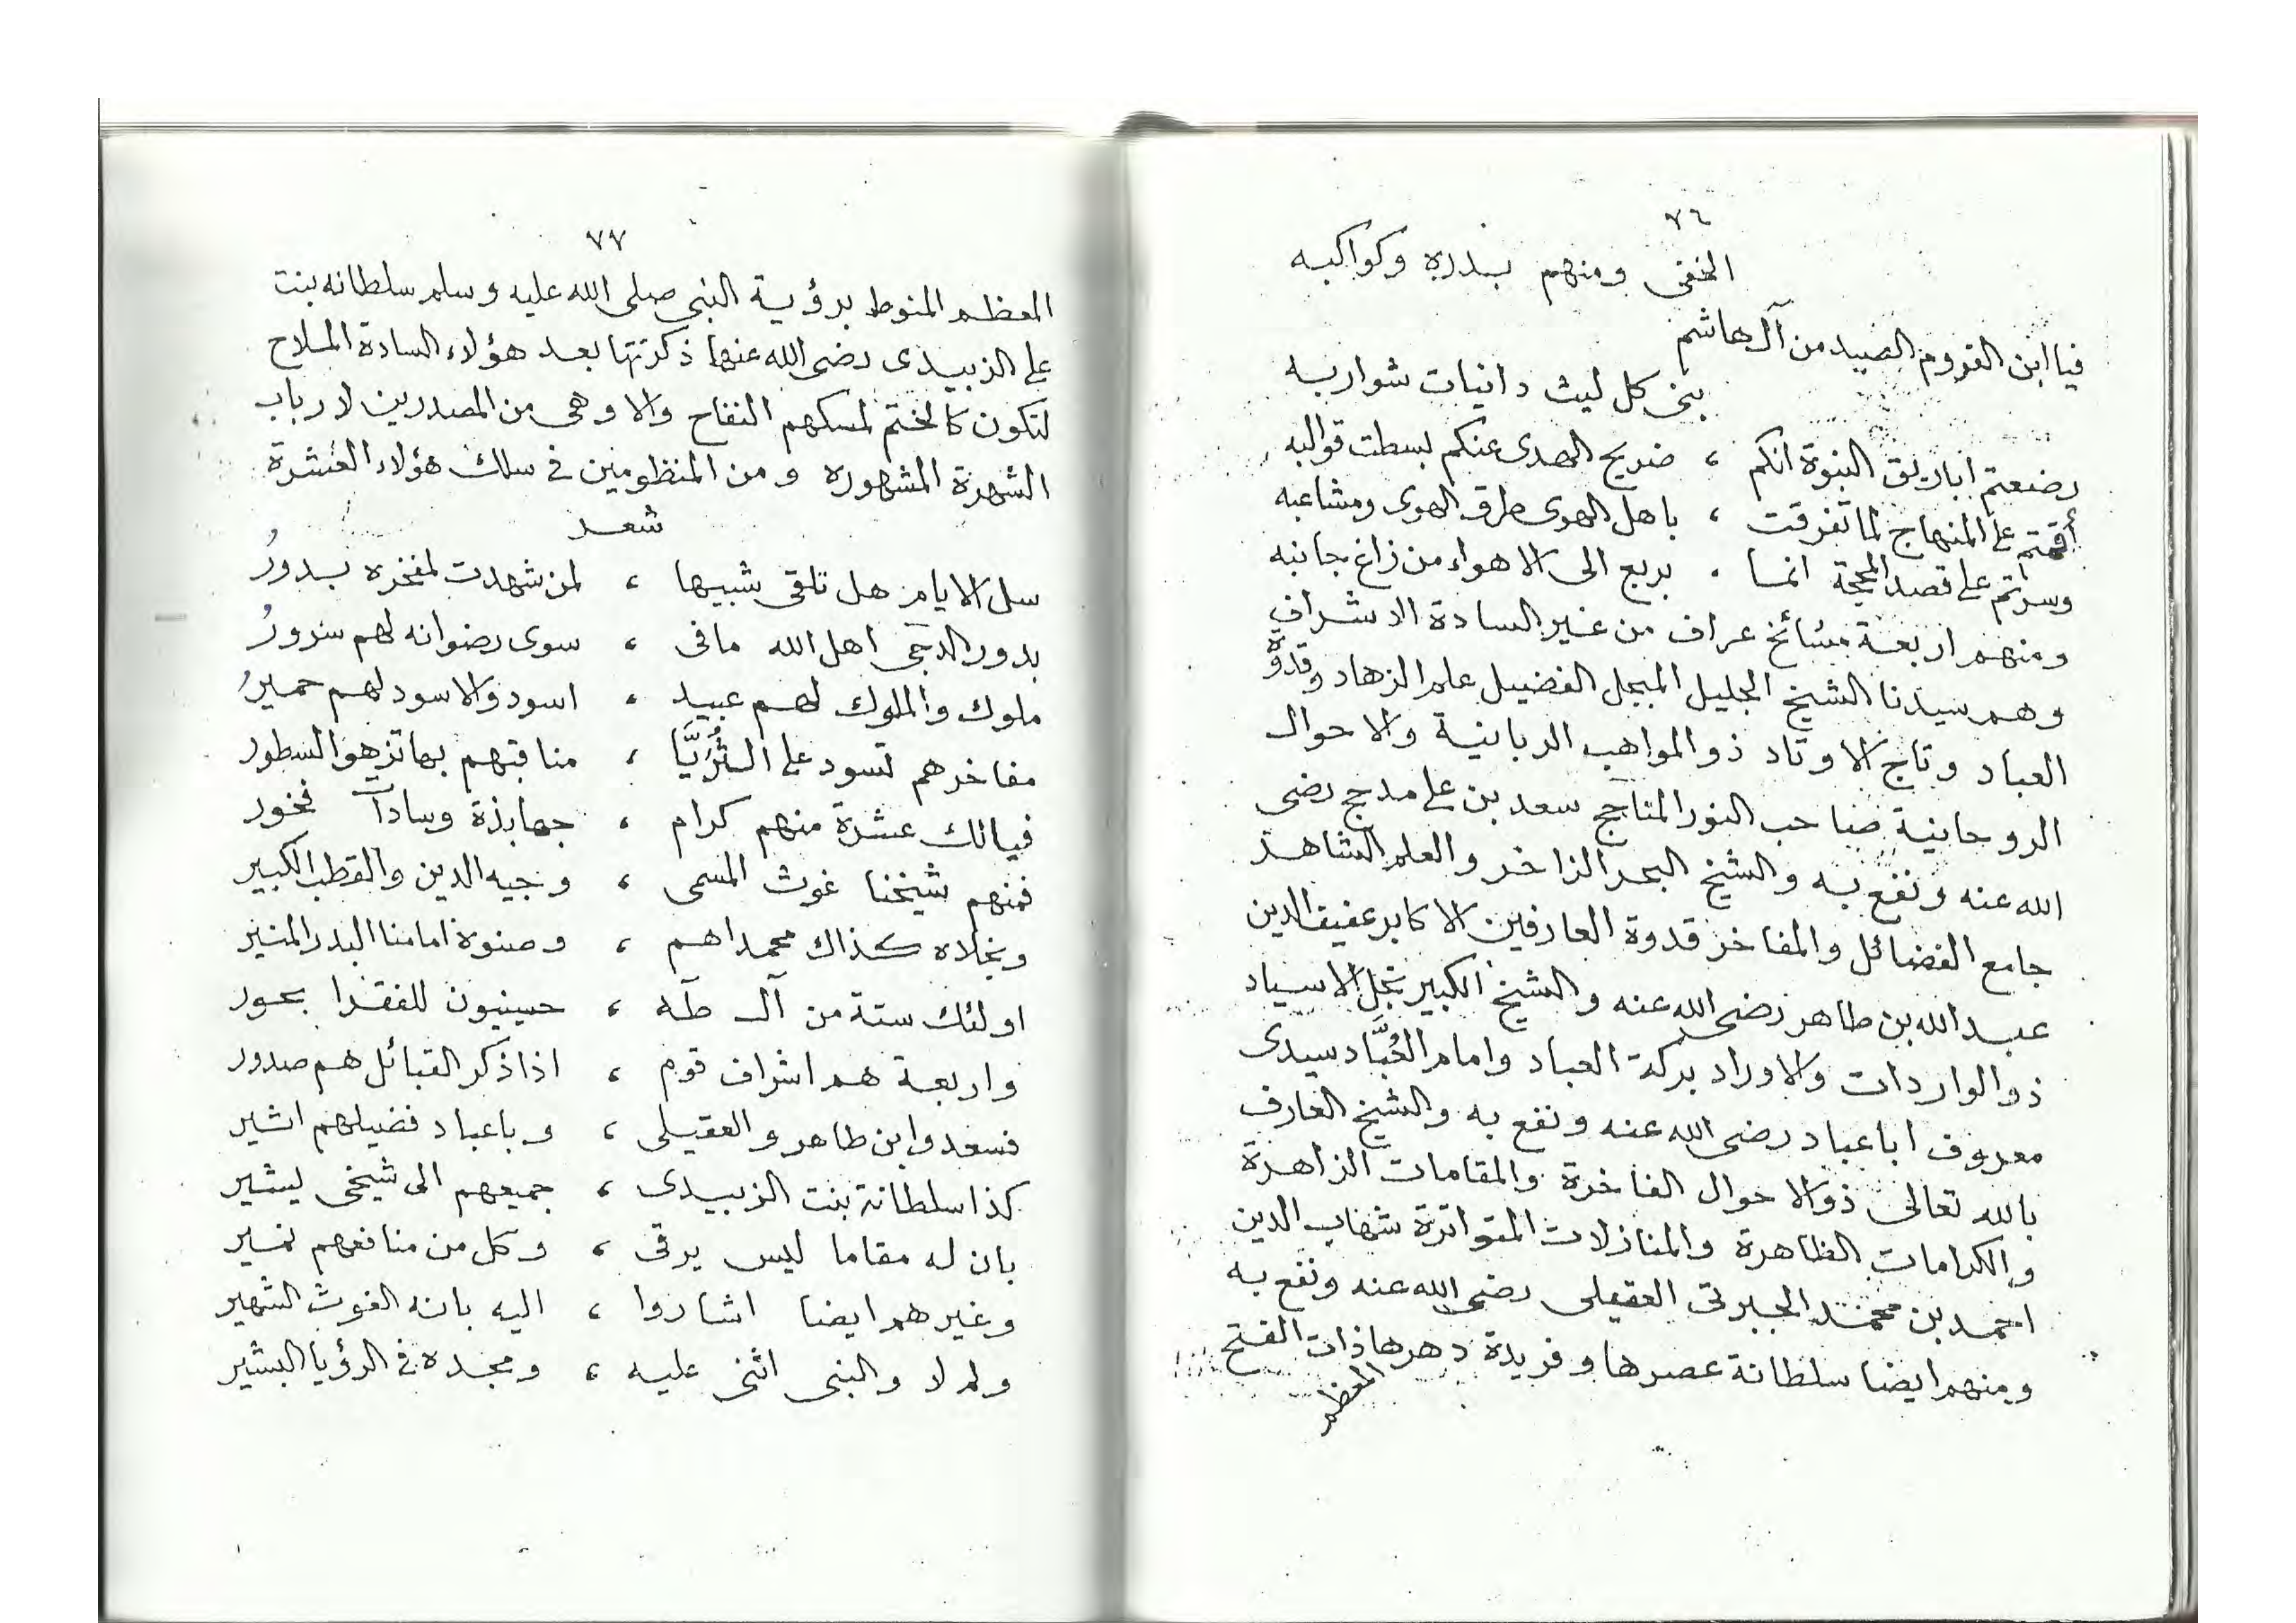 ٧٦
الخفى ومنهم بدره وكواكبه
فيا ابن القروم الصيد من آل هاشم
بنى كل ليث دانيات شواربه
رضعتم اباريق النبوة انكم ، صريح الهدى عنكم بسطت قوالبه
أقمتم على المنهاج لما تفرقت ، باهل الهوى طرق الهوى ومشاعبه
وسرتم على قصد المحجة انما ، يريع الى الاهواء من زاغ جانبه
ومنهم اربعة مشائخ عراف من غير السادة الاشراف
وهم سيدنا الشيخ الجليل المبجل الفضيل علم الزهاد وقدوة
العباد وتاج الاوتاد ذو المواهب الربانية والاحوال
الروحانية صاحب النور المتاجج سعد بن على مدحج رضى
الله عنه ونفع به والشيخ البحر الزاخر والعلم الشاهر
جامع الفضائل والمفاخر قدوة العارفين الاكابر عفيف الدين
عبد الله بن طاهر رضى الله عنه والشيخ الكبير نجل الاسياد
ذو الواردات والاوراد بركة العباد وامام العُبَّاد سيدى
معروف اباعباد رضى الله عنه ونفع به والشيخ العارف
بالله تعالى ذو الاحوال الفاخرة والمقامات الزاهرة
والكرامات الظاهرة والمنازلات المتواترة شهاب الدين
احمد بن محمد الجبرتى العقيلى رضى الله عنه ونفع به
ومنهم ايضا سلطانة عصرها وفريدة دهرها ذات الفتح
المعظم
٧٧
المعظم المنوط برؤية النبى صلى الله عليه وسلم سلطانه بنت
على الزبيدى رضى الله عنها ذكرتها بعد هؤلاء السادة الملاح
لتكون كالختم لمسكهم النفاح والا وهى من المصدرين لارباب
الشهرة المشهوره ومن المنظومين فى سلك هؤلاء العشرة
شعر
سل الايام هل تلقى شبيها ، لمن شهدت لمفخره بدورُ
بدور الدجى اهل الله مافى ، سوى رضوانه لهم سرورُ
ملوك والملوك لهم عبيد ، اسود والاسود لهم حميرُ
مفاخرهم تسود على الثُّرَيَّا ، مناقبهم بها تزهوا السطور
فيالك عشرة منهم كرام ، جهابذة وسادآت فخور
فمنهم شيخنا غوث المسمى ، وجيه الدين والقطب الكبير
ونجلاه كذاك محمداهم ، وصنوة امامنا البدر المنير
اولئك ستة من آل طه ، حسينيون للفقرا بحور
واربعة هم اشراف قوم ، اذا ذكر القبائل هم صدور
فسعد وابن طاهر والعقيلى ، وباعباد فضيلهم اشير
كذا سلطانة بنت الزبيدى ، جميعهم الى شيخى يشير
بان له مقاما ليس يرقى ، وكل من منافعهم نمير
وغيرهم ايضا اشاروا ، اليه بانه الغوث الشهير
ولم لا والنبى اثنى عليه ، ومجده فى الرؤيا البشير